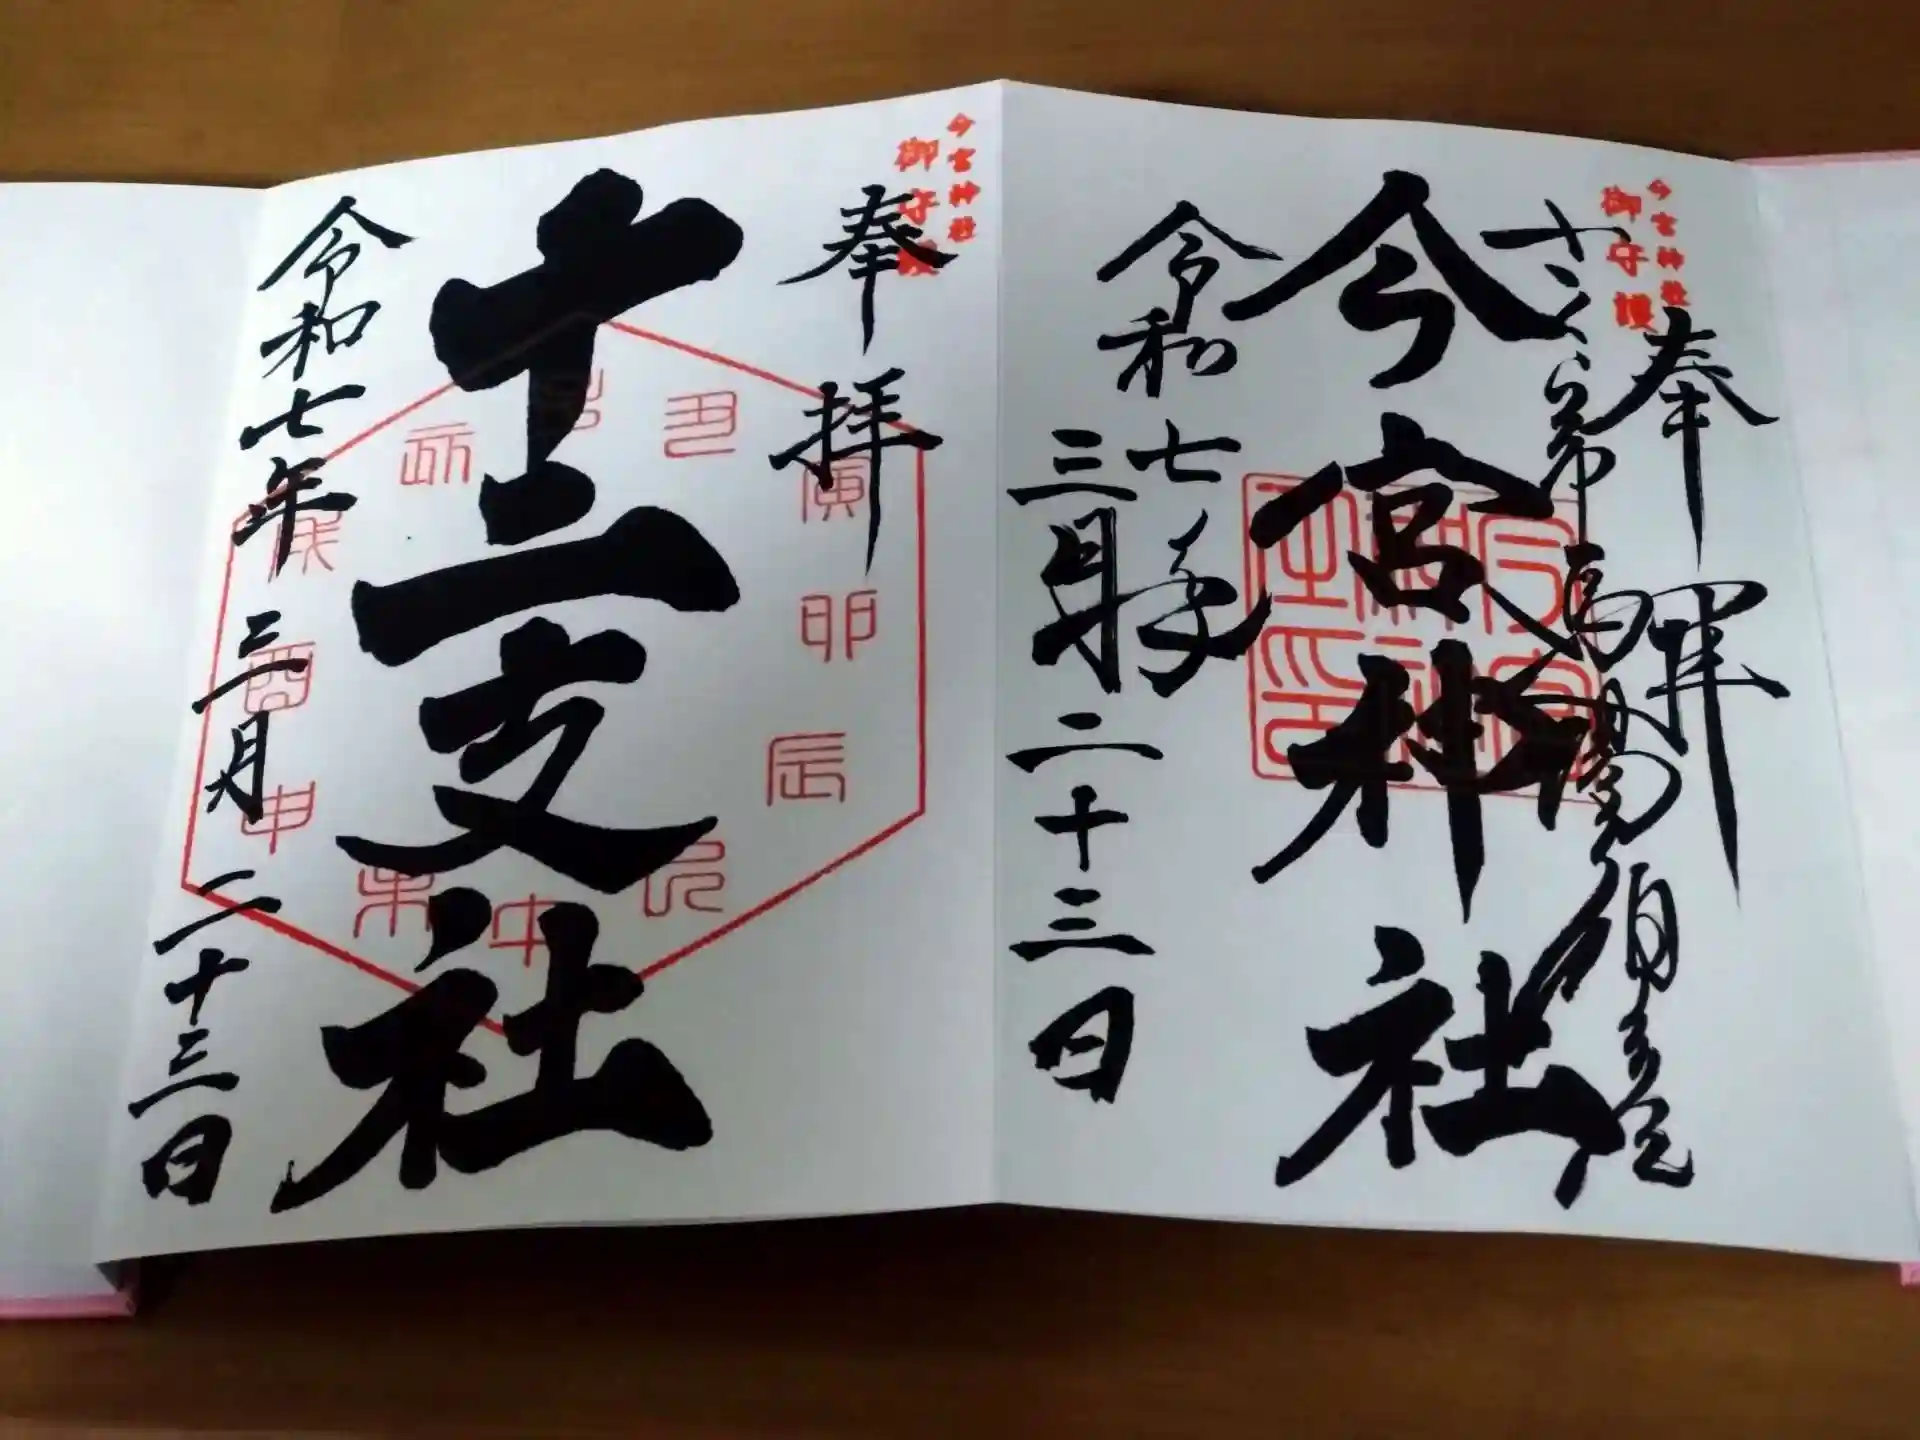 今宮神社
御守護
奉拝
今宮神社
令和七年
三月二十三日
今宮神社
御守護
奉拝
十二支社
令和七年三月二十三日
丑
寅
卯
辰
巳
午
未
申
酉
戌
亥